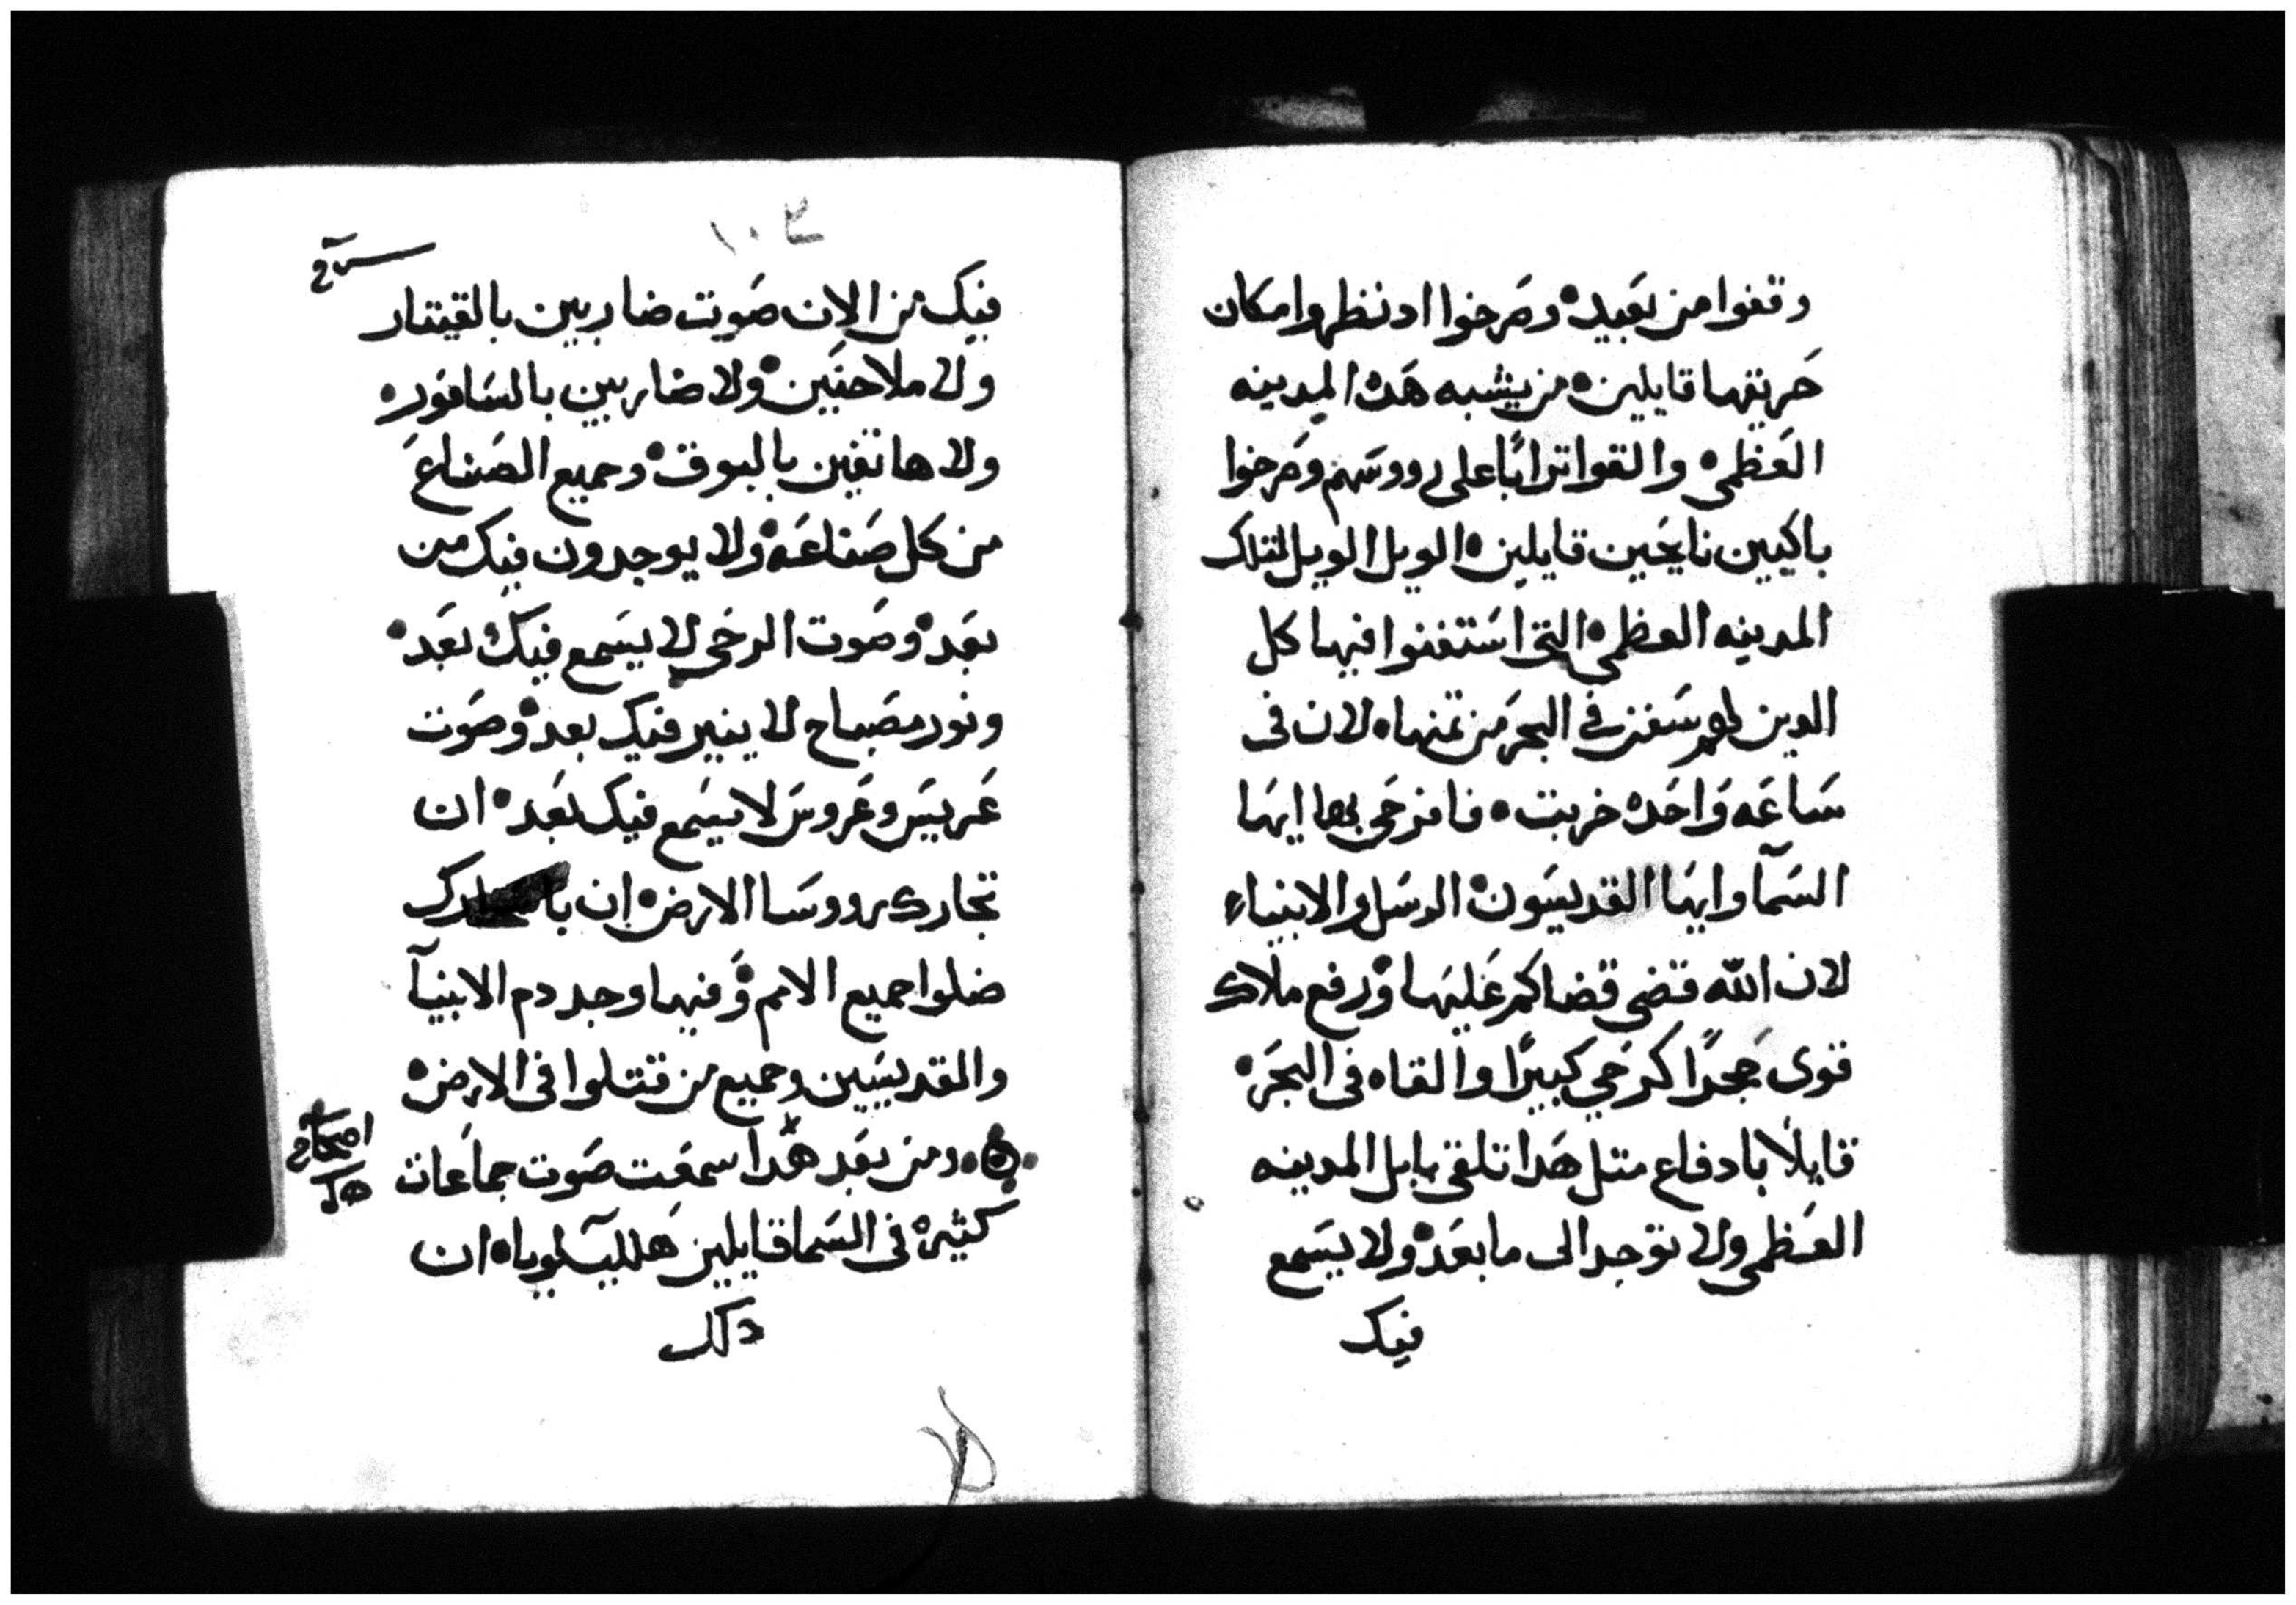 وقفوا من بعيد وصرخوا اد نظروا مكان
حريقها قايلين من يشبه هده المدينه
العظمى والقوا ترابًا على رووسهم وصرخوا
باكيين نايحين قايلين الويل الويل لتلك
المدينه العظمى التى استغنوا فيها كل
الدين لهم سفن في البحر من تمنها لان فى
ساعه واحده خربت فافرحى بها ايها
السمآ وايها القديسون الرسل والانبياء
لان الله قضى قضاكم عليها ورفع ملاك
قوى حجرًا كرحي كبيرًا والقاه فى البحر
قايلًا بادفاع متل هدا تلقى بابل المدينه
العظمى ولا توجد الى ما بعد ولا يسمع
فيك
١٠٣
فيك من الان صوت ضاربين بالقيتار
ولا ملاحنين ولا ضاربين بالسافور
ولا هاتفين بالبوق وجميع الصناع
من كل صناعه ولا يوجدون فيك من
بعد وصوت الرحى لا يسمع فيك بعد
ونور مصباح لا ينير فيك بعد وصوت
عريس وعروس لا يسمع فيك بعد ان
تجارك رووسا الارض ان
ضلوا جميع الامم وفيها وجد دم الانبيآ
والقديسين وجميع من قتلوا فى الارض
ومن بعد هدا سمعت صوت جماعات
كثيره فى السما قايلين هلليلويا ان
اصحاح